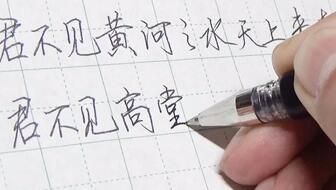 君不见黄河之水天上来
君不见高堂